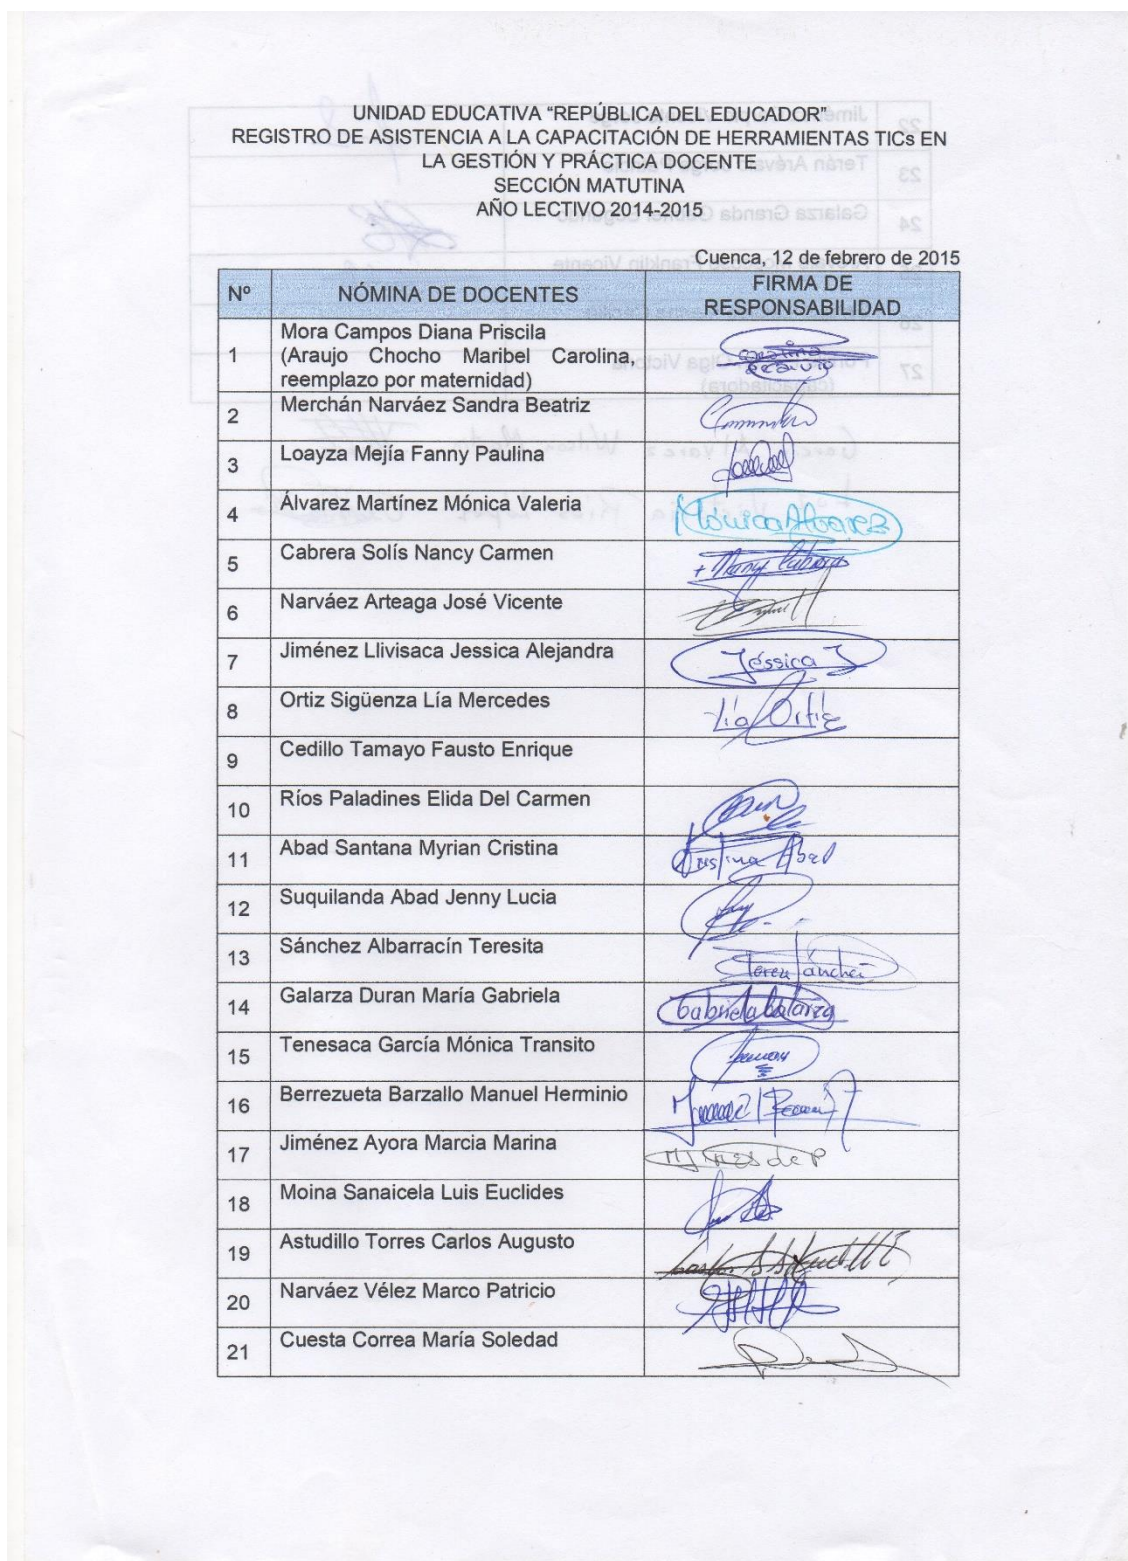 UNIDAD EDUCATIVA “REPÚBLICA DEL EDUCADOR”
REGISTRO DE ASISTENCIA A LA CAPACITACIÓN DE HERRAMIENTAS TICs EN
LA GESTIÓN Y PRÁCTICA DOCENTE
SECCIÓN MATUTINA
AÑO LECTIVO 2014-2015
Cuenca, 12 de febrero de 2015
Nº NÓMINA DE DOCENTES FIRMA DE
RESPONSABILIDAD
1 Mora Campos Diana Priscila
(Araujo Chocho Maribel Carolina,
reemplazo por maternidad)
2 Merchán Narváez Sandra Beatriz
3 Loayza Mejía Fanny Paulina
4 Álvarez Martínez Mónica Valeria Mónica Alvarez
5 Cabrera Solís Nancy Carmen
6 Narváez Arteaga José Vicente
7 Jiménez Llivisaca Jessica Alejandra Jéssica J
8 Ortiz Sigüenza Lía Mercedes Lía Ortiz
9 Cedillo Tamayo Fausto Enrique
10 Ríos Paladines Elida Del Carmen
11 Abad Santana Myrian Cristina Cristina Abad
12 Suquilanda Abad Jenny Lucia
13 Sánchez Albarracín Teresita
14 Galarza Duran María Gabriela Gabriela Galarza
15 Tenesaca García Mónica Transito
16 Berrezueta Barzallo Manuel Herminio
17 Jiménez Ayora Marcia Marina
18 Moina Sanaicela Luis Euclides
19 Astudillo Torres Carlos Augusto
20 Narváez Vélez Marco Patricio
21 Cuesta Correa María Soledad